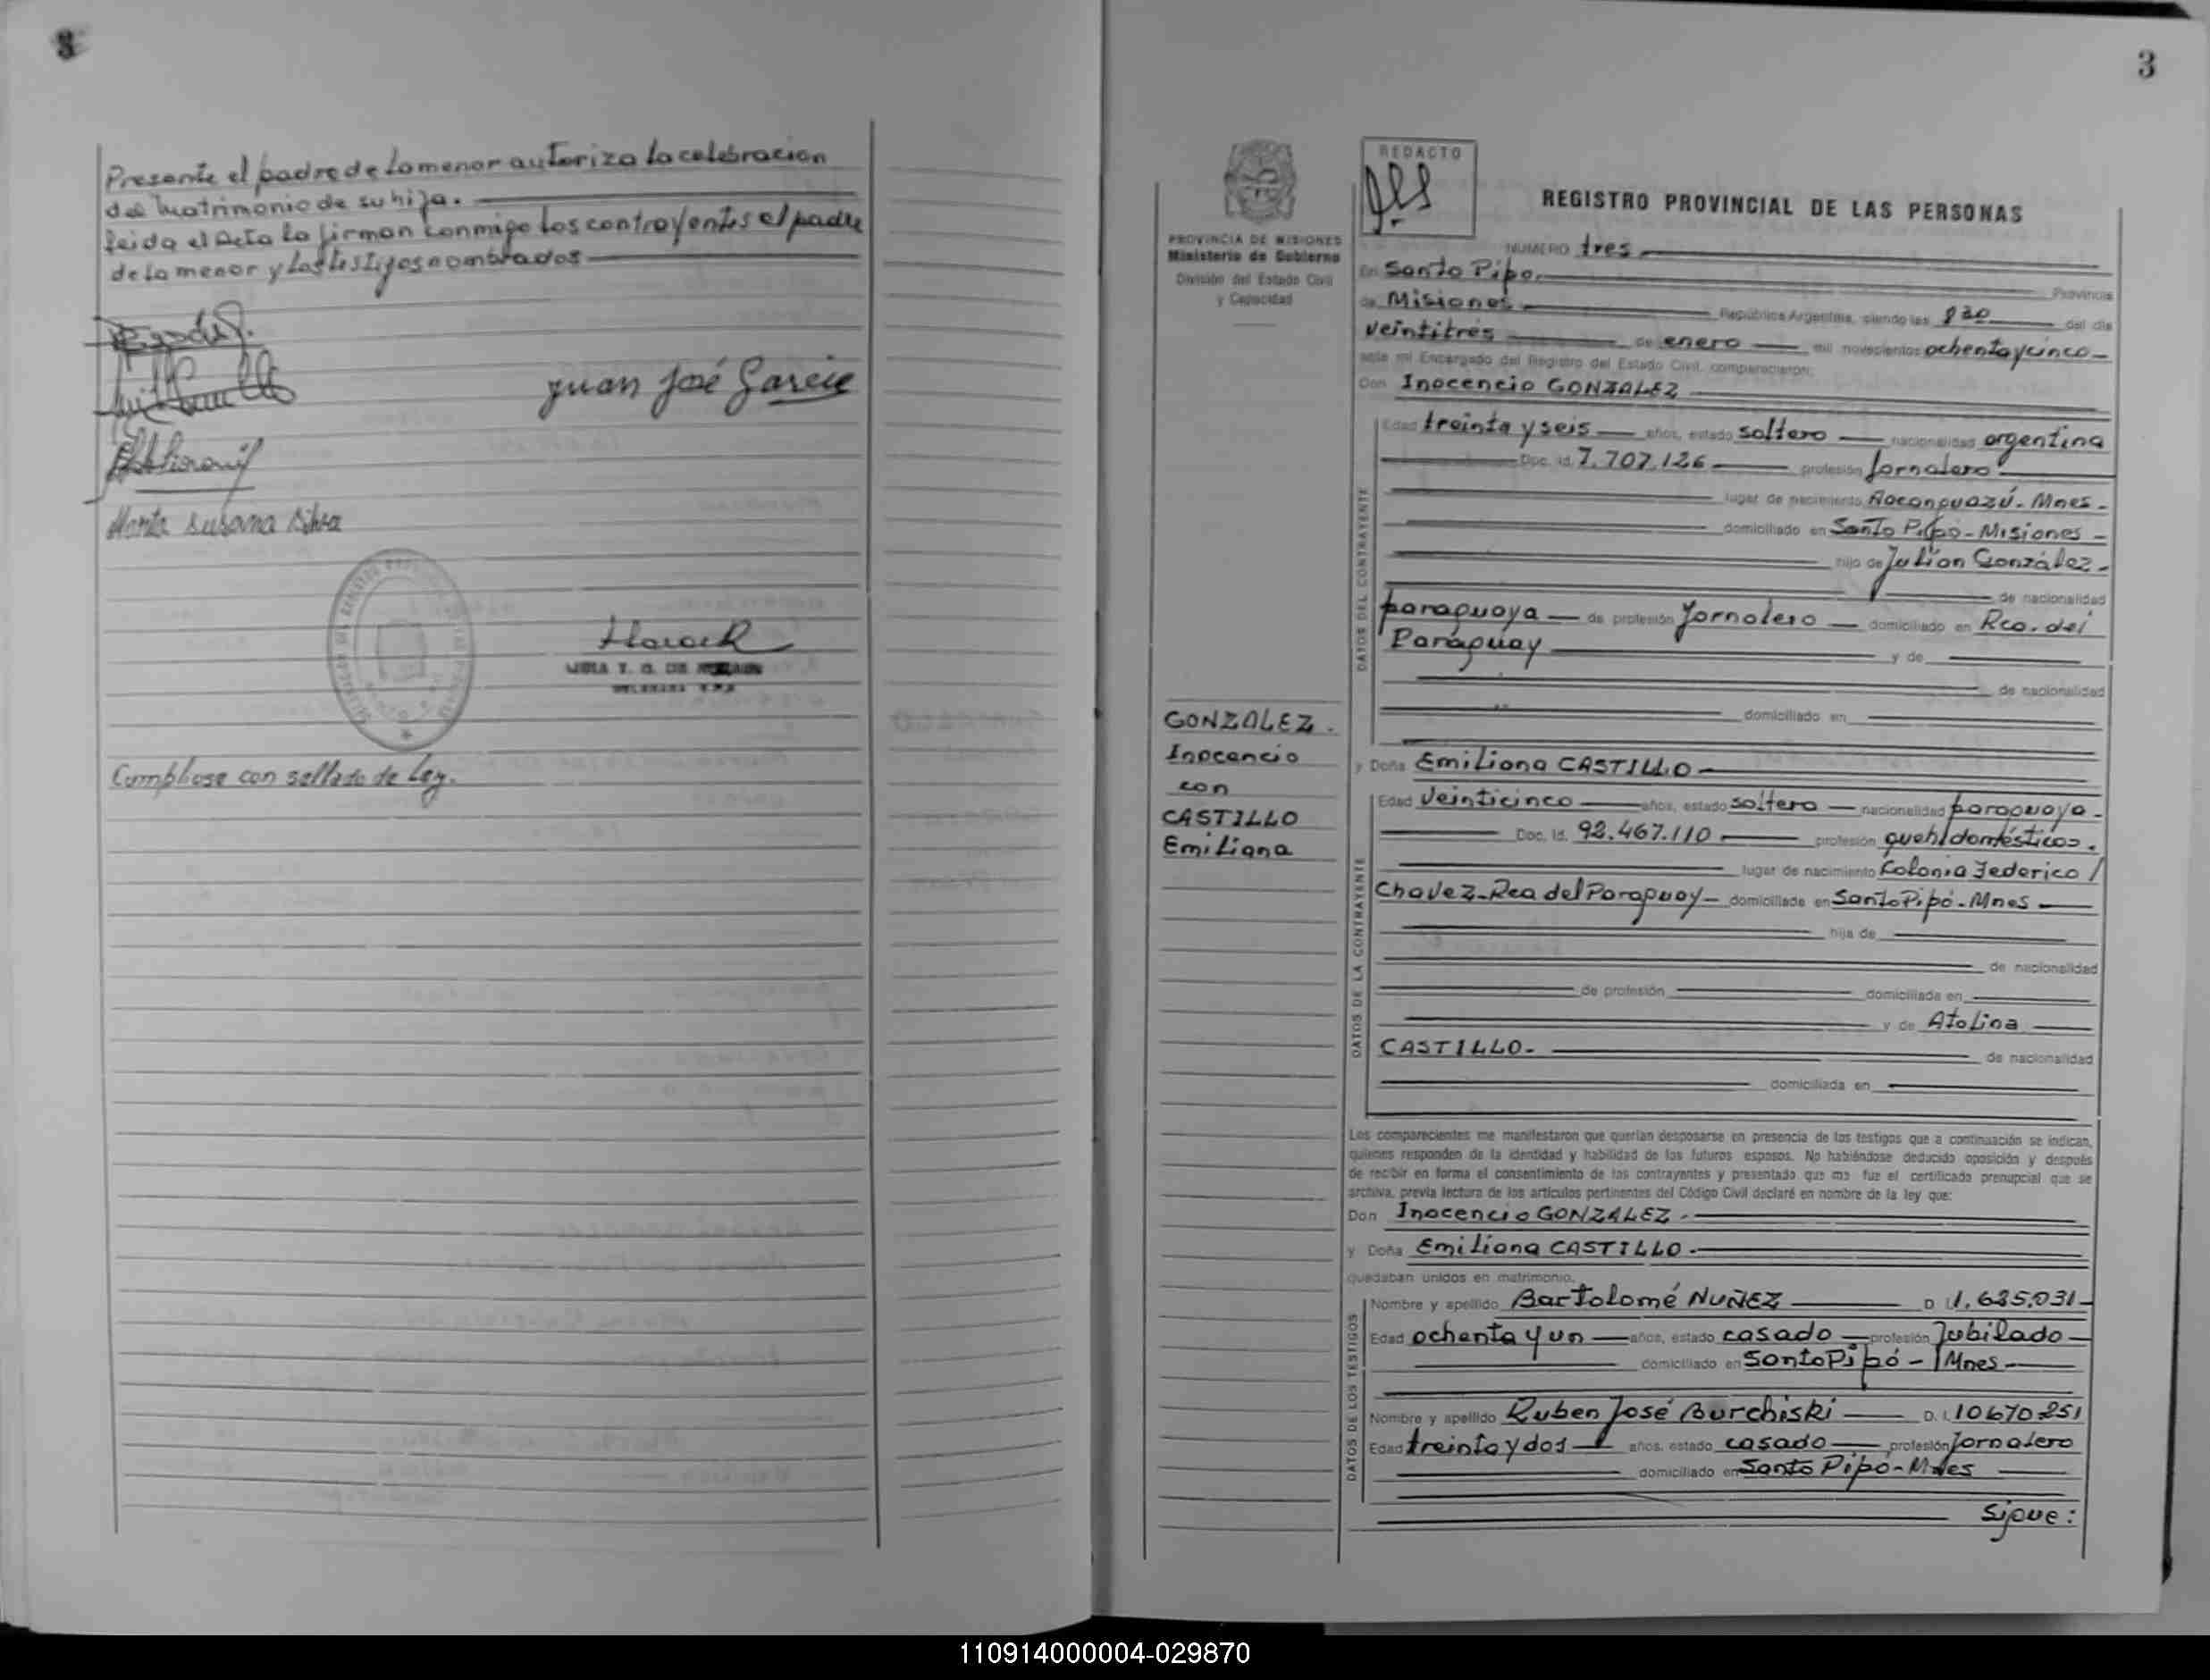 3
Presente el padre de la menor autoriza la celebración
del matrimonio de su hija.
leida el Acta la firman conmigo los contrayentes el padre
de la menor y los testigos nombrados
Juan José Garcia
Marta Susana Silva
Cumpliose con sellado de Ley.
3
REDACTO
PROVINCIA DE MISIONES
Ministerio de Gobierno
División del Estado Civil
y Capacidad
GONZALEZ.
Inocencio
con
CASTILLO
Emiliana
REGISTRO PROVINCIAL DE LAS PERSONAS
NUMERO tres
En Santo Pipo. Provincia
de Misiones República Argentina, siendo las 8 30 del día
veintitres de enero mil novecientos ochenta y cinco
ante mí Encargado del Registro del Estado Civil, comparecieron:
Don Inocencio GONZALEZ
DATOS DEL CONTRAYENTE
Edad treinta y seis años, estado soltero nacionalidad argentina
Doc. Id. 7.707.126 profesión Jornalero
lugar de nacimiento Mnes.
domiciliado en Santo Pipo - Misiones
hijo de Julian González
de nacionalidad
paraguaya de profesión Jornalero domiciliado en Rca. del
Paraguay y de
de nacionalidad
domiciliado en
y Doña Emiliana CASTILLO
DATOS DE LA CONTRAYENTE
Edad Veinticinco años, estado soltera nacionalidad paraguaya
Doc. Id. 92.467.110 profesión queh/domésticos.
lugar de nacimiento Colonia Federico /
Chavez-Rca del Paraguay - domiciliada en Santo Pipó - Mnes
hija de
de nacionalidad
de profesión domiciliada en
y de Atolina
CASTILLO. de nacionalidad
domiciliada en
Los comparecientes me manifestaron que querían desposarse en presencia de los testigos que a continuación se indican,
quienes responden de la identidad y habilidad de los futuros esposos. No habiéndose deducido oposición y después
de recibir en forma el consentimiento de los contrayentes y presentado que me fue el certificado prenupcial que se
archiva, previa lectura de los artículos pertinentes del Código Civil declaré en nombre de la ley que:
Don Inocencio GONZALEZ.
y Doña Emiliana CASTILLO.
quedaban unidos en matrimonio.
DATOS DE LOS TESTIGOS
Nombre y apellido Bartolomé NUÑEZ D. I. 1.635.031
Edad ochenta y un años, estado casado profesión Jubilado
domiciliado en Santo Pipó - Mnes
Nombre y apellido Ruben José Burchiski D. I. 10670251
Edad treinta y dos años, estado casado profesión Jornalero
domiciliado en Santo Pipó - Mnes
Sigue:
110914000004-029870